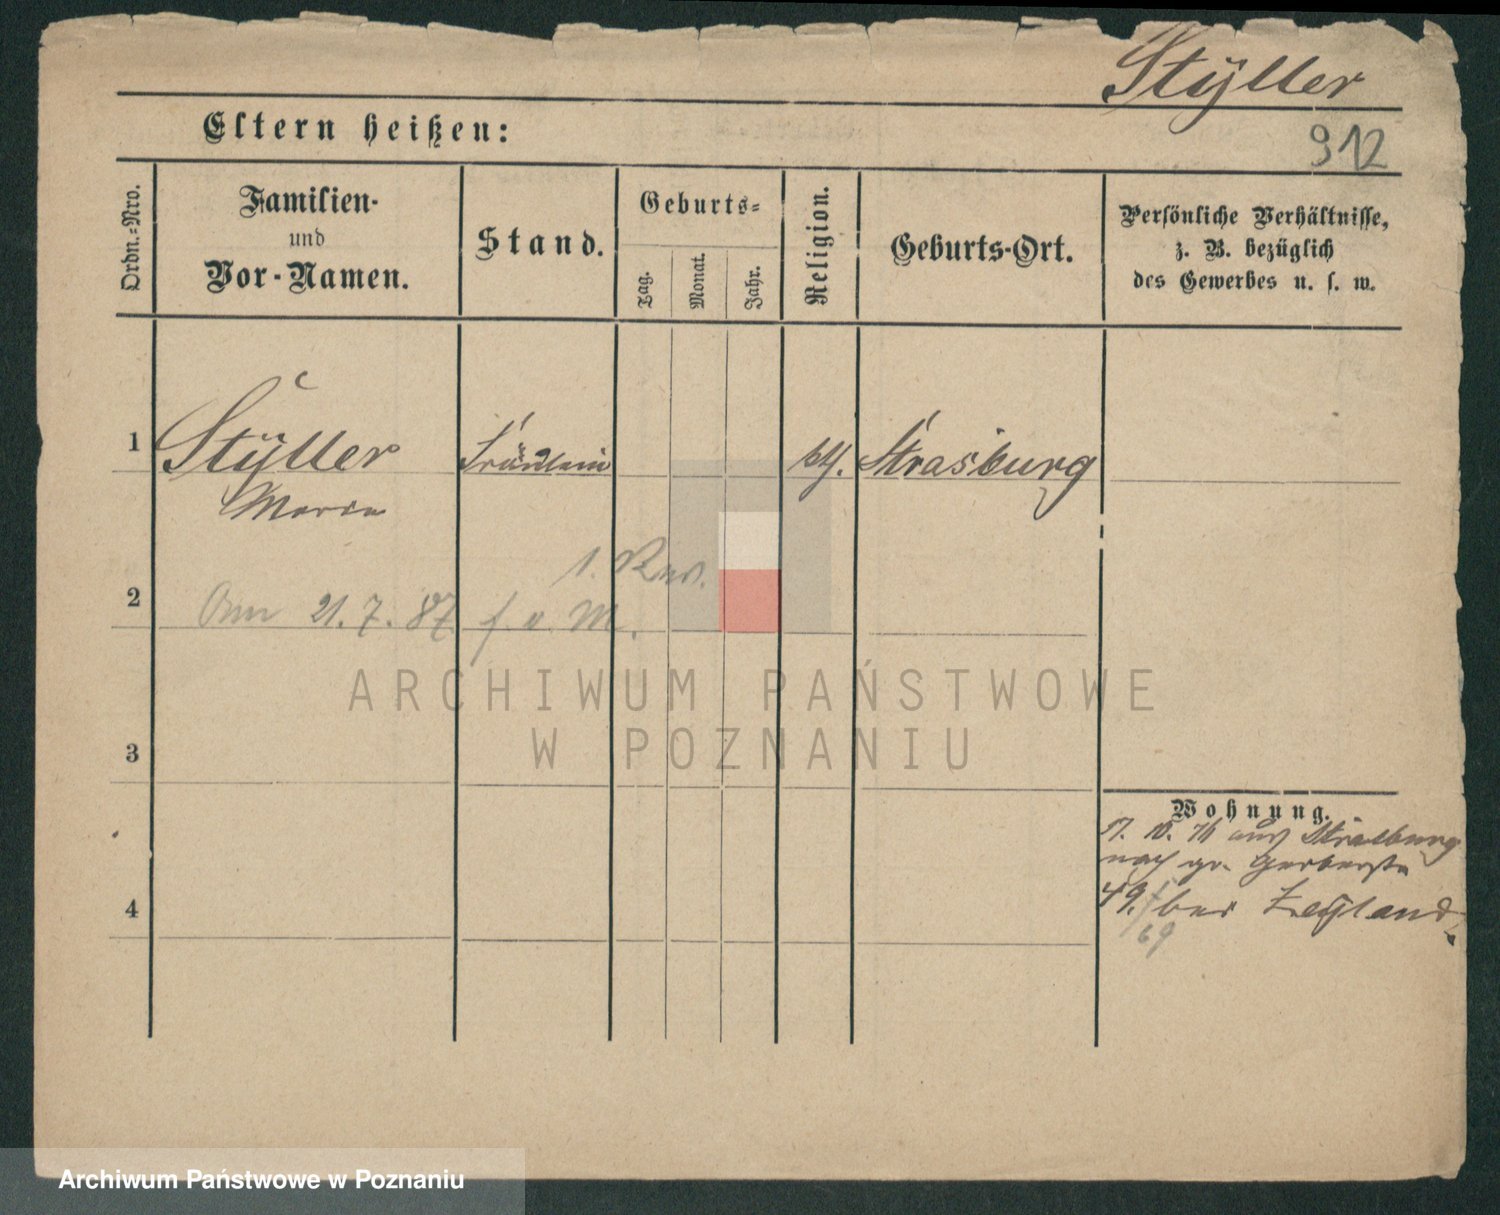 Stÿller
912
Eltern heißen:
Ordn.-Nro.
Familien-
und
Vor-Namen.
Stand.
Geburts-
Tag.
Monat.
Jahr.
Religion.
Geburts-Ort.
Persönliche Verhältnisse,
z. B. bezüglich
des Gewerbes u. s. w.
1
Stÿller
Maria
Fräulein
Strasburg
1. Rev.
2
Am 21.7.87 f. v. M.
ARCHIWUM PAŃSTWOWE
W POZNANIU
3
Wohnung.
10. 76 aus Strasburg
nach gr. Gerberstr
49. bei Zeÿland
69
4
Archiwum Państwowe w Poznaniu